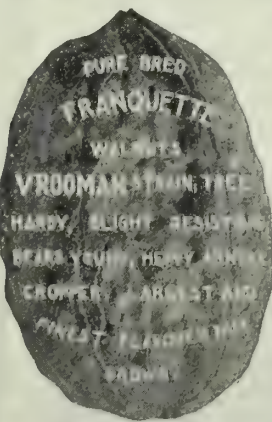 PURE BRED
FRANQUETTE
WALNUTS
VROOMAN STRAIN TREE
HARDY, BLIGHT RESISTING
BEARS YOUNG, HEAVY ANNUAL
CROPPER, LARGEST AND
FINEST FLAVORED NUT